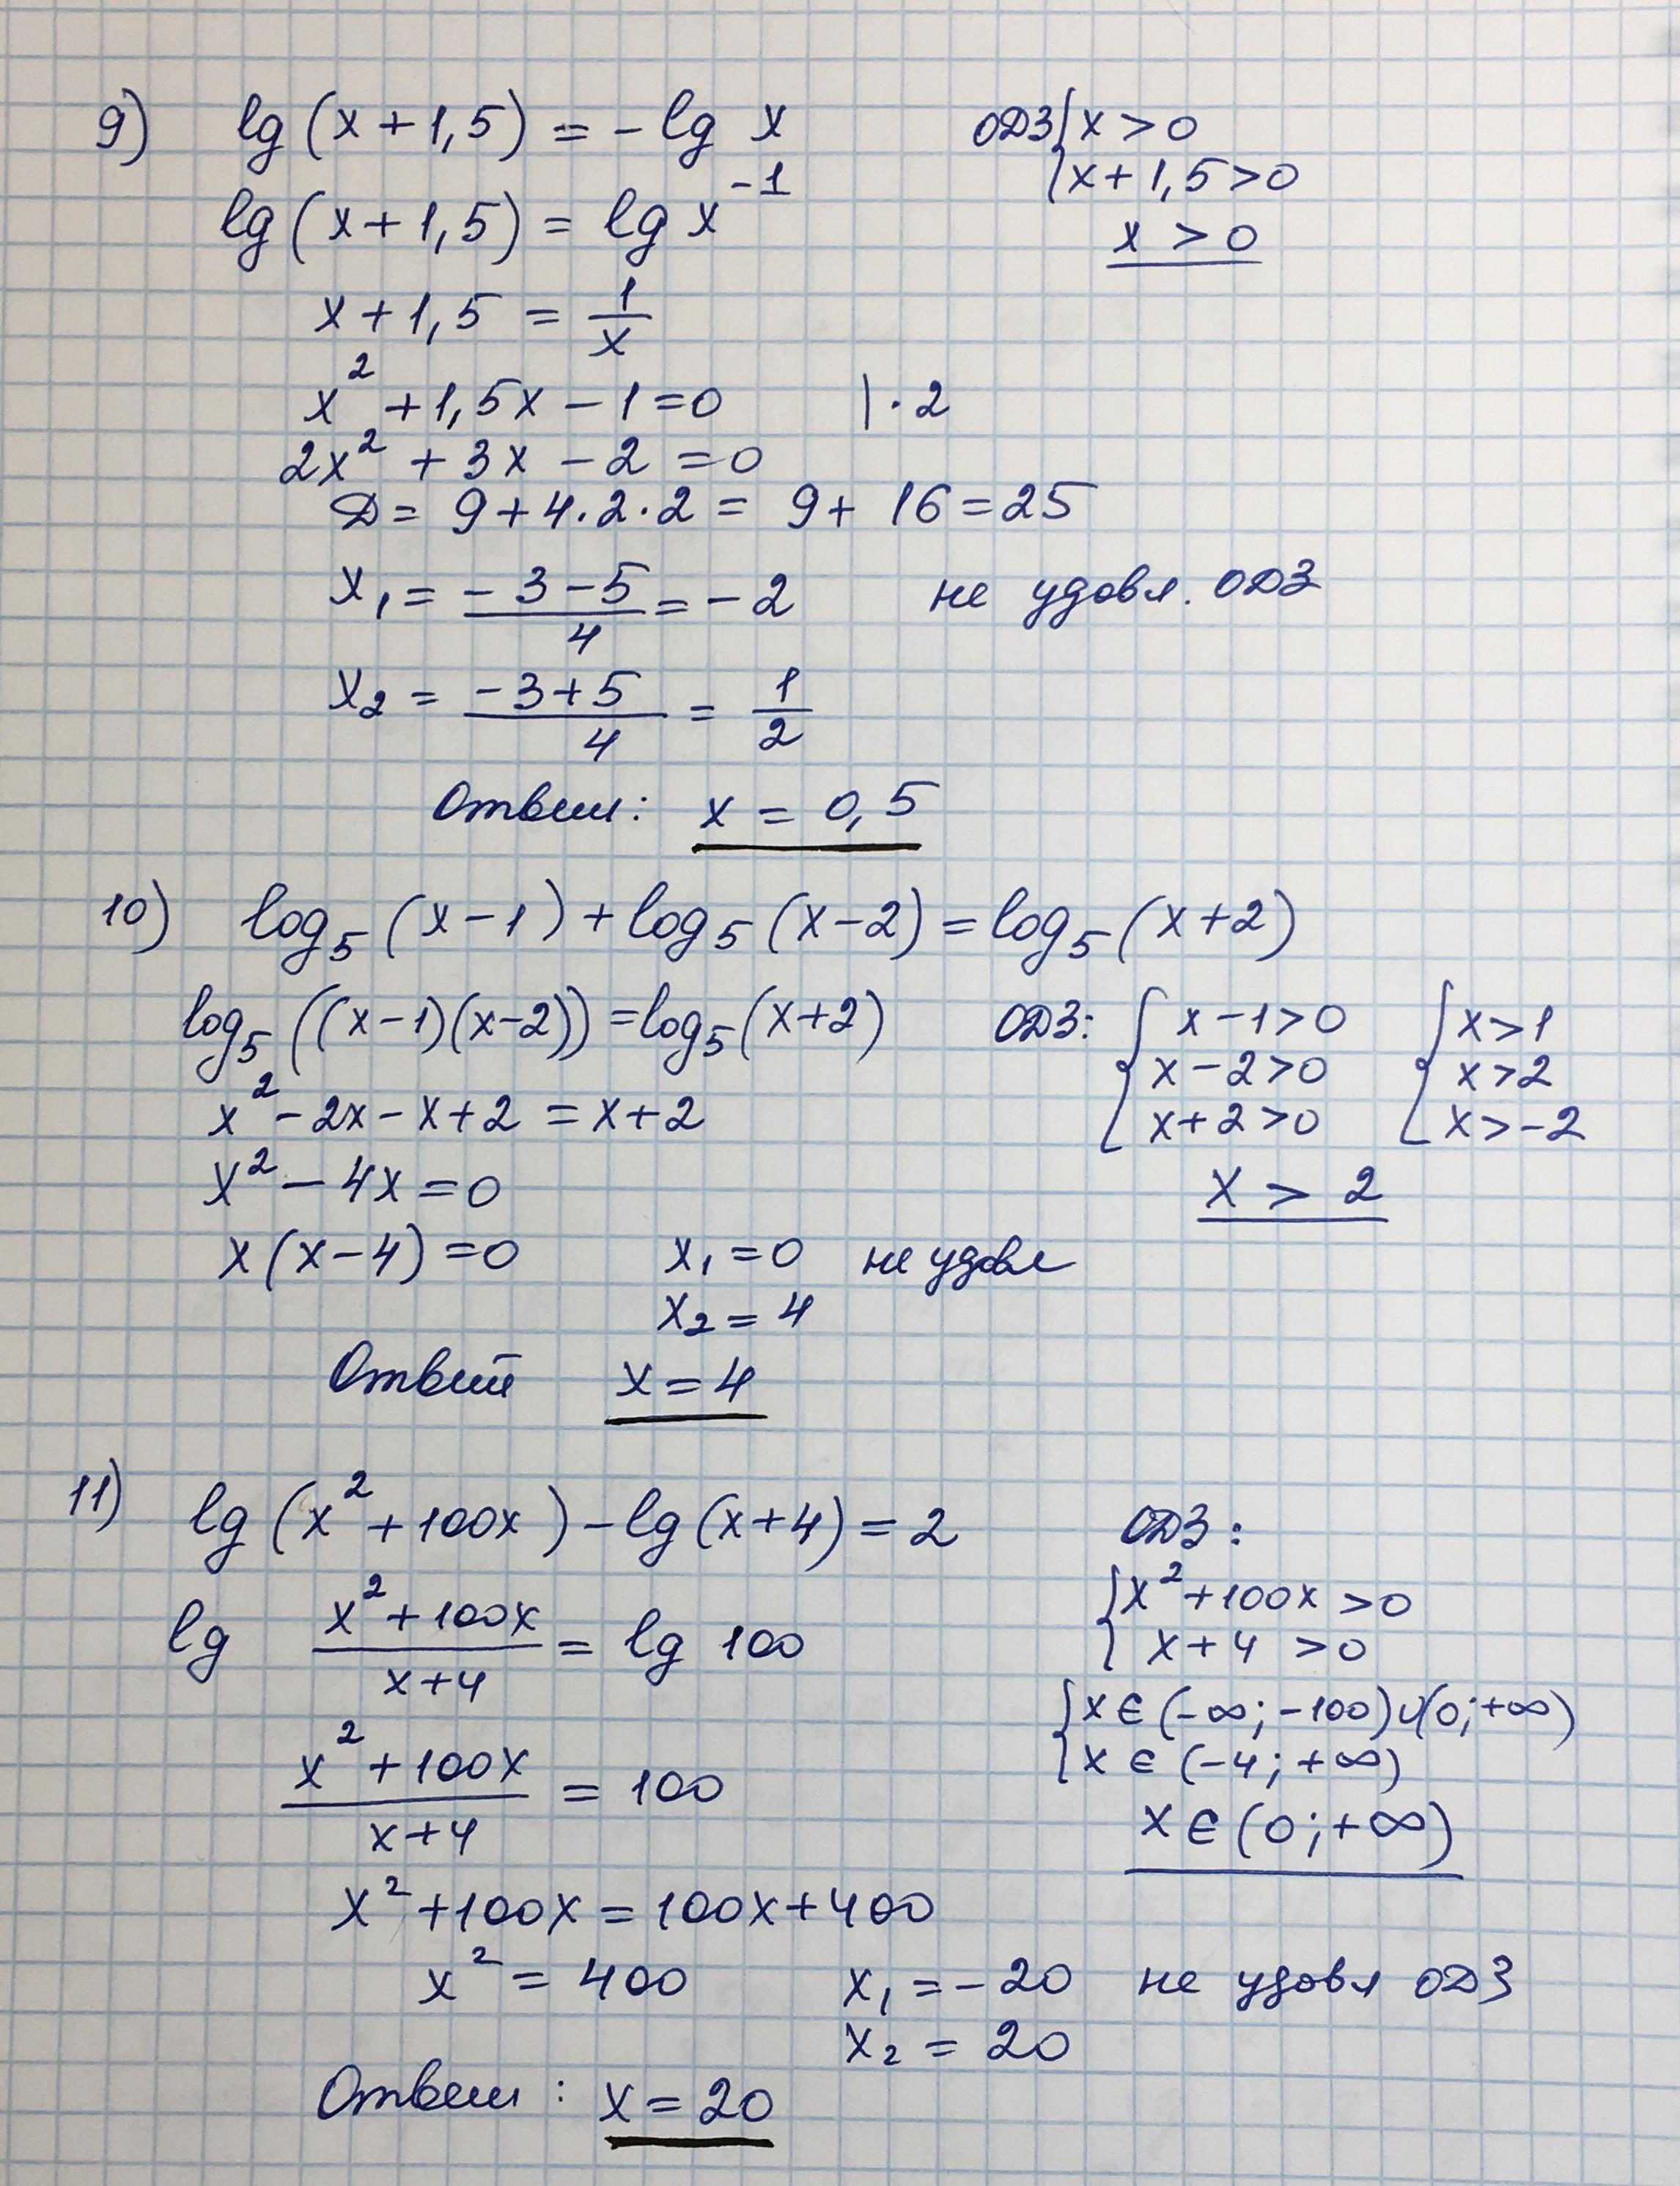 9) lg(x+1,5) = -lg x
ОДЗ { x > 0
{ x+1,5 > 0
x > 0
lg(x+1,5) = lg x⁻¹
x+1,5 = 1/x
x² + 1,5x - 1 = 0 | · 2
2x² + 3x - 2 = 0
Д = 9 + 4·2·2 = 9 + 16 = 25
x₁ = (-3-5)/4 = -2 не удовл. ОДЗ
x₂ = (-3+5)/4 = 1/2
Ответ: x = 0,5
10) log₅(x-1) + log₅(x-2) = log₅(x+2)
log₅((x-1)(x-2)) = log₅(x+2)
ОДЗ: { x-1>0 { x>1
{ x-2>0 { x>2
{ x+2>0 { x>-2
x > 2
x² - 2x - x + 2 = x+2
x² - 4x = 0
x(x-4) = 0 x₁ = 0 не удовл
x₂ = 4
Ответ x = 4
11) lg(x²+100x) - lg(x+4) = 2
ОДЗ:
{ x²+100x > 0
{ x+4 > 0
{ x ∈ (-∞; -100)∪(0; +∞)
{ x ∈ (-4; +∞)
x ∈ (0; +∞)
lg (x²+100x)/(x+4) = lg 100
(x²+100x)/(x+4) = 100
x²+100x = 100x+400
x² = 400 x₁ = -20 не удовл ОДЗ
x₂ = 20
Ответ: x = 20